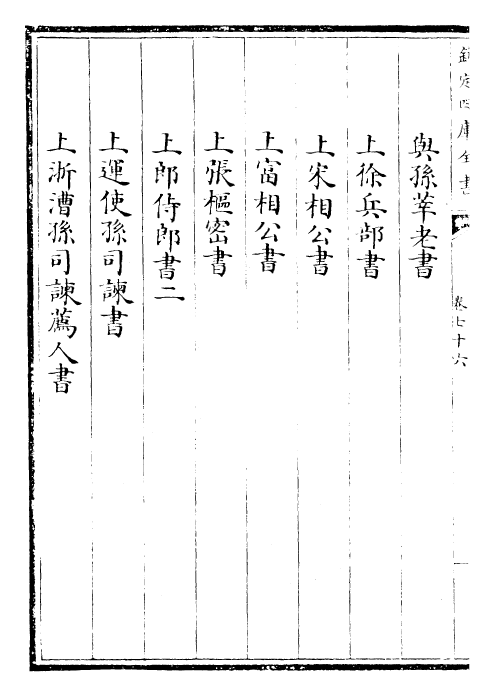 欽定四庫全書
卷七十六
與孫莘老書
上徐兵部書
上宋相公書
上富相公書
上張樞密書
上郎侍郎書二
上運使孫司諫書
上浙漕孫司諫薦人書